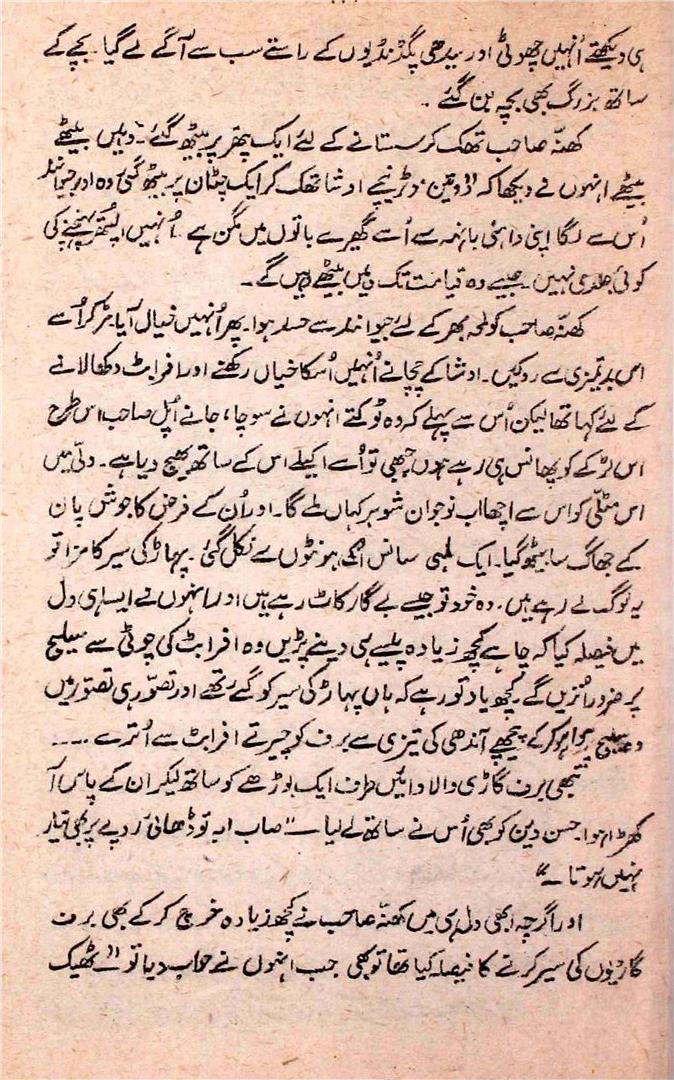 ہی دیکھتے اُنہیں چھوٹی اور سیدھی پگڈنڈیوں کے راستے سب سے آگے لے گیا۔ بچے کے
ساتھ بزرگ بھی بچہ بن گئے۔
کھنّہ صاحب تھک کر سستانے کے لئے ایک پتھر پر بیٹھ گئے۔ وہیں بیٹھے
بیٹھے انہوں نے دیکھا کہ دو تین موڑ نیچے اوشا تھک کر ایک چٹان پر بیٹھ گئی ہے اور جیوانند
اُس سے لگا اپنی داہنی بانہہ سے اُسے گھیرے باتوں میں مگن ہے۔ اُنہیں اوپر پہنچنے کی
کوئی جلدی نہیں۔ جیسے وہ قیامت تک وہیں بیٹھے رہیں گے۔
کھنّہ صاحب کو لمحہ بھر کے لئے جیوانند سے حسد ہوا۔ پھر اُنہیں خیال آیا بڑھ کر اُسے
اس بدتمیزی سے روکیں۔ اوشا کے چچا نے اُنہیں اُسکا خیال رکھنے اور افربٹ دکھا لانے
کے لئے کہا تھا لیکن اُس سے پہلے کہ وہ ٹوکتے انہوں نے سوچا، جانے اُپل صاحب اس طرح
اس لڑکے کو پھانس ہی رہے ہوں جبھی تو اُسے اکیلے اس کے ساتھ بھیج دیا ہے۔ دلّی میں
اس مٹلّی کو اس سے اچھا اب نوجوان شوہر کہاں ملے گا۔ اور اُن کے فرض کا جوش پان
کے جھاگ سا بیٹھ گیا۔ ایک لمبی سانس انکے ہونٹوں سے نکل گئی۔ پہاڑ کی سیر کا مزا تو
یہ لوگ لے رہے ہیں۔ وہ خود تو جیسے بے گار کاٹ رہے ہیں اور انہوں نے ایسا ہی دل
میں فیصلہ کیا کہ چاہے کچھ زیادہ پیسے ہی دینے پڑیں وہ افرابٹ کی چوٹی سے سیلیج
پر ضرور اُتریں گے۔ کچھ یاد تو رہے کہ ہاں پہاڑ کی سیر کو گئے تھے اور تصوّر ہی تصوّر میں
وہ سیلیج پر ہوا ہو کر کے پیچھے آندھی کی تیزی سے برف کو چیرتے افرابٹ سے اُترے ۔۔۔۔
تبھی برف گاڑی والا دائیں طرف ایک بوڑھے کو ساتھ لیکر ان کے پاس آ
کھڑا ہوا۔ حسن دین کو بھی اُس نے ساتھ لے لیا۔ "صاب یہ تو ڈھائی روپے پر بھی تیار
نہیں ہوتا۔"
اور اگرچہ ابھی دل ہی میں کھنّہ صاحب نے کچھ زیادہ خرچ کر کے بھی برف
گاڑیوں کی سیر کرنے کا فیصلہ کیا تھا تو بھی جب انہوں نے جواب دیا تو "ٹھیک